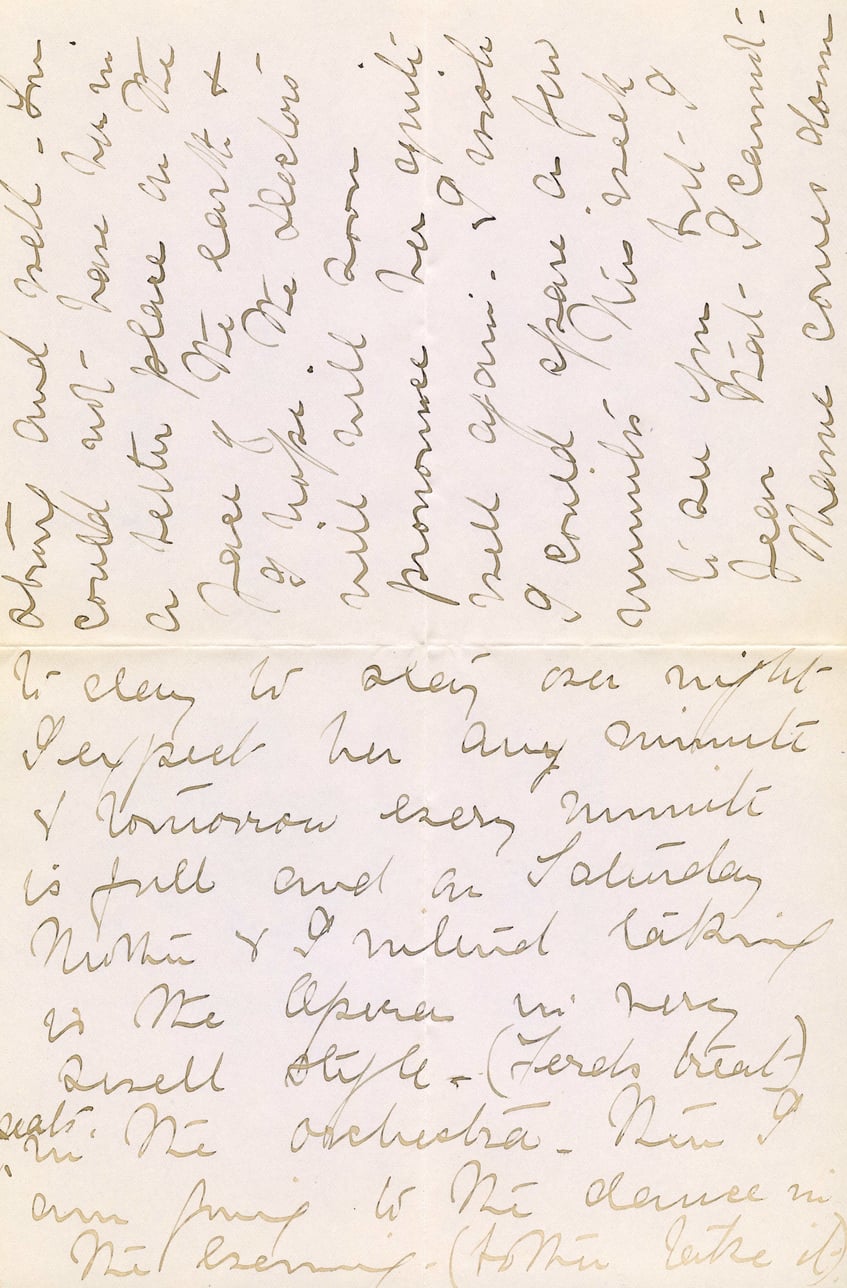 strong and well - You
could not have her in
a better place on the
face of the earth &
I hope the doctors
will will soon
pronounce her quite
well again. & I wish
I could spare a few
minutes this week
to see you but I
fear that I cannot -
Mame comes down
to day to stay over night
I expect her any minute
& tomorrow every minute
is full and on Saturday
Mother & I intend taking
in the Opera in very
swell style - (Ferds treat)
seats
in the orchestra - Then I
am going to the dance in
the evening - (bother take it)